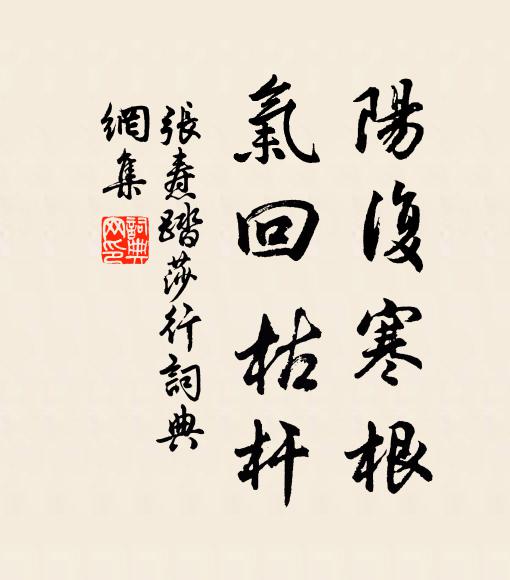 陽復寒根
氣回枯杆
張燾踏莎行詞典
網集
詞典
网印